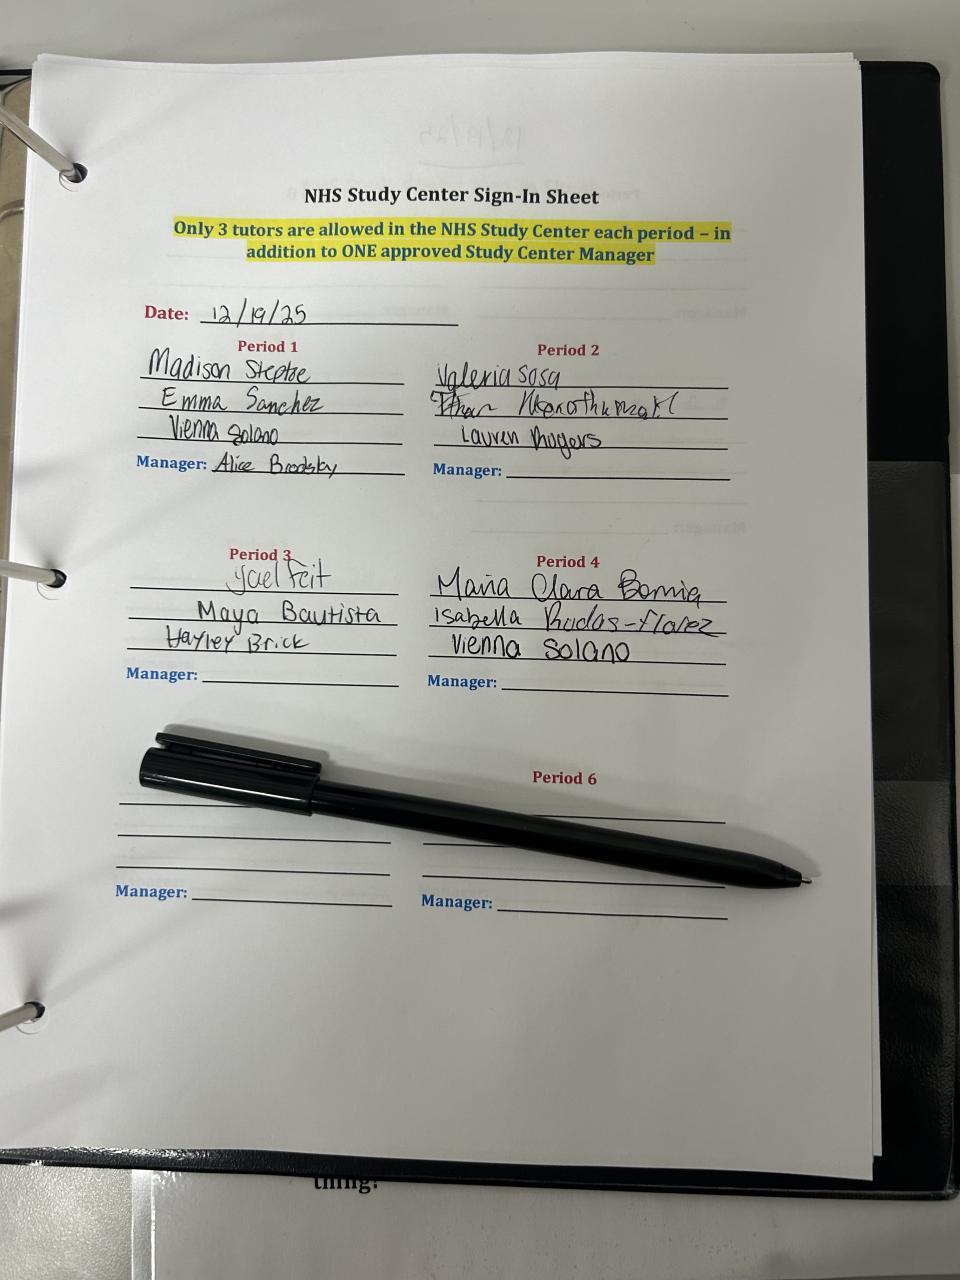 NHS Study Center Sign-In Sheet
Only 3 tutors are allowed in the NHS Study Center each period – in
addition to ONE approved Study Center Manager
Date: 12/19/25
Period 1
Madison Steptoe
Emma Sanchez
Vienna Solano
Manager: Alice Brodsky
Period 2
Valeria Sosa
Lauren Rogers
Manager:
Period 3
Yael Feit
Maya Bautista
Hayley Brick
Manager:
Period 4
Maria Clara
Isabella
Vienna Solano
Manager:
Manager:
Period 6
Manager:
thing!